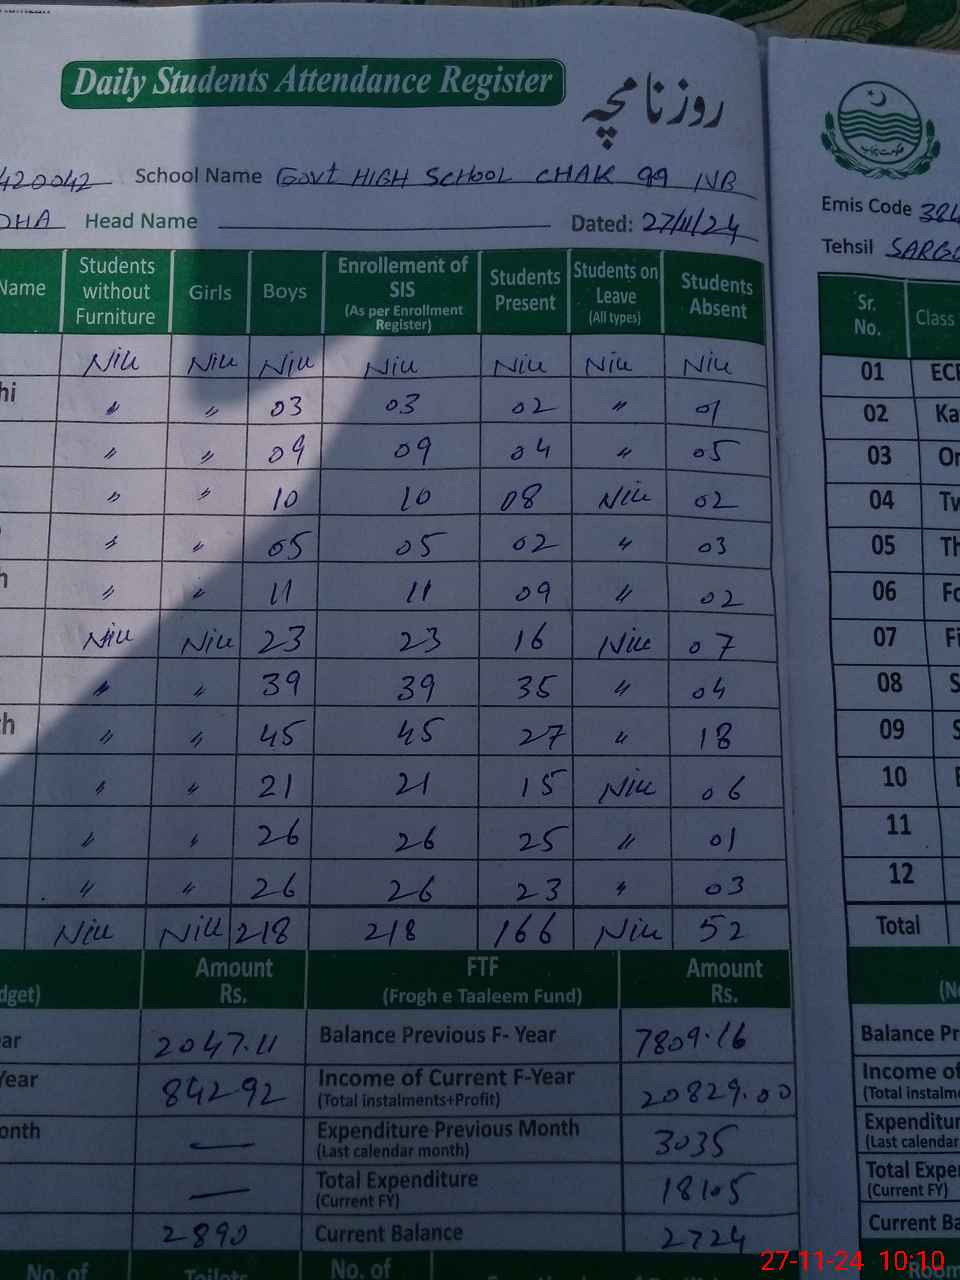 Daily Students Attendance Register
روزنامچہ
420042 School Name Govt HIGH SCHOOL CHAK 99 NB
DHA Head Name Dated: 27/11/24
Name Students without Furniture Girls Boys Enrollement of SIS (As per Enrollment Register) Students Present Students on Leave (All types) Students Absent
Nill Nill Nill Nill Nill Nill Nill
hi 〃 〃 03 03 02 〃 01
〃 〃 09 09 04 〃 05
〃 〃 10 10 08 Nill 02
〃 〃 05 05 02 〃 03
h 〃 〃 11 11 09 〃 02
Nill Nill 23 23 16 Nill 07
〃 〃 39 39 35 〃 04
th 〃 〃 45 45 27 〃 18
〃 〃 21 21 15 Nill 06
〃 〃 26 26 25 〃 01
〃 〃 26 26 23 〃 03
Nill Nill 218 218 166 Nill 52
dget) Amount Rs. FTF (Frogh e Taaleem Fund) Amount Rs.
ear 2047.11 Balance Previous F- Year 7809.16
Year 842.92 Income of Current F-Year (Total instalments+Profit) 20829.00
onth — Expenditure Previous Month (Last calendar month) 3035
— Total Expenditure (Current FY) 18105
2890 Current Balance 2724
No. of Toilets No. of
حکومت پنجاب
Emis Code 384
Tehsil SARGO
Sr. No. Class
01 ECE
02 Ka
03 On
04 Tw
05 Th
06 Fo
07 Fi
08 S
09 S
10 E
11
12
Total
(No
Balance Pr
Income of
(Total instalme
Expenditur
(Last calendar
Total Expe
(Current FY)
Current Ba
Room
27-11-24 10:10